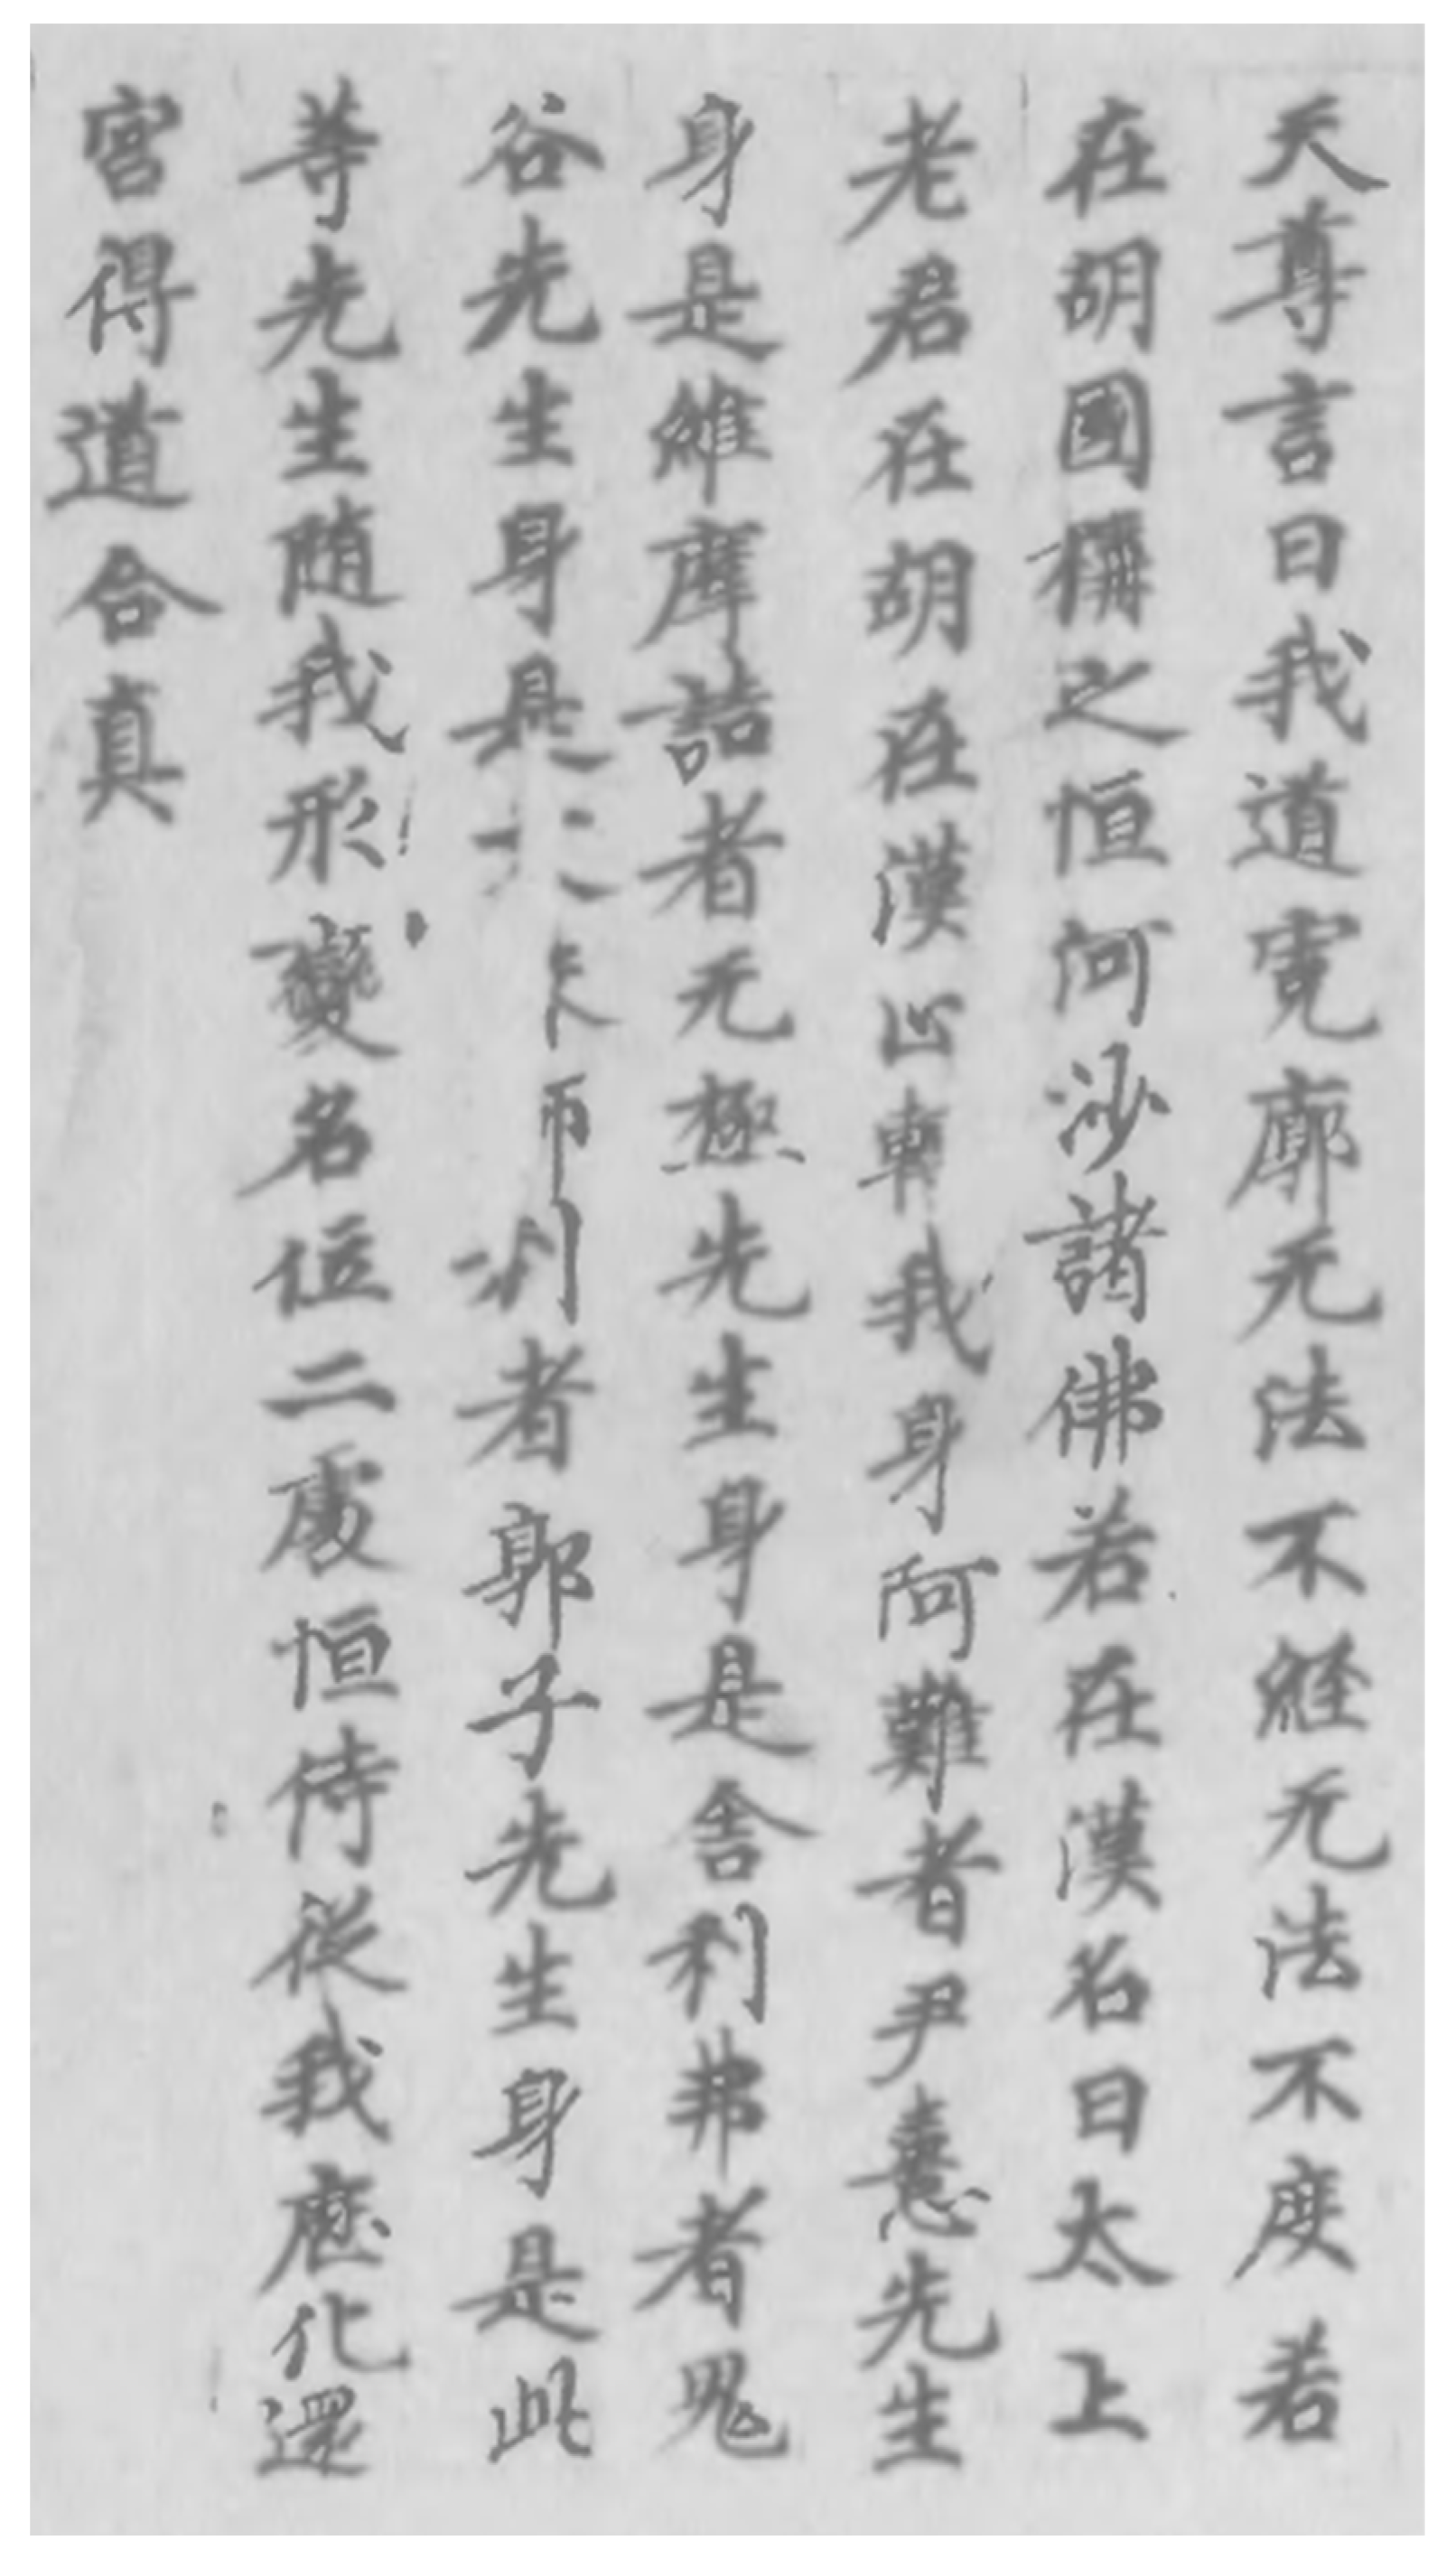 天尊言曰我道寛廓无法不經无法不度若
在胡國稱之恒河沙諸佛若在漢名曰太上
老君在胡在漢出我身阿難者尹憙先生
身是維摩詰者无極先生身是舍利弗者鬼
谷先生身是大者郭子先生身是此
等先生随我形變名位二處恒侍從我應化還
宮得道合真